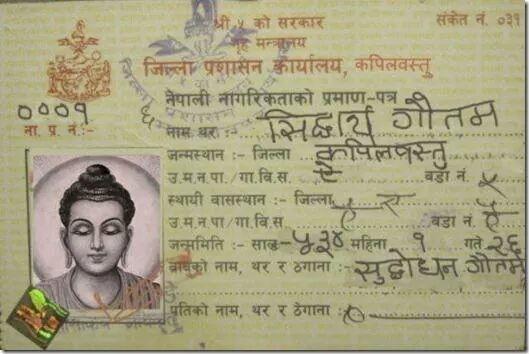 श्री ५ को सरकार
गृह मन्त्रालय
संकेत नं. ०३१
जिल्ला प्रशासन कार्यालय, कपिलवस्तु
नेपाली नागरिकताको प्रमाण-पत्र
०००१
ना. प्र. नं.:-
नाम थर :- सिद्धार्थ गौतम
जन्मस्थान :- जिल्ला कपिलवस्तु
उ.म.न.पा./गा.वि.स. ऐ वडा नं. १
स्थायी वासस्थान :- जिल्ला ऐ
उ.म.न.पा./गा.वि.स वडा नं. ऐ
जन्ममिति :- साल- ५३४ महिना १ गते २६
बाबुको नाम, थर र ठेगाना :- सुद्धोधन गौतम
पतिको नाम, थर र ठेगाना :-